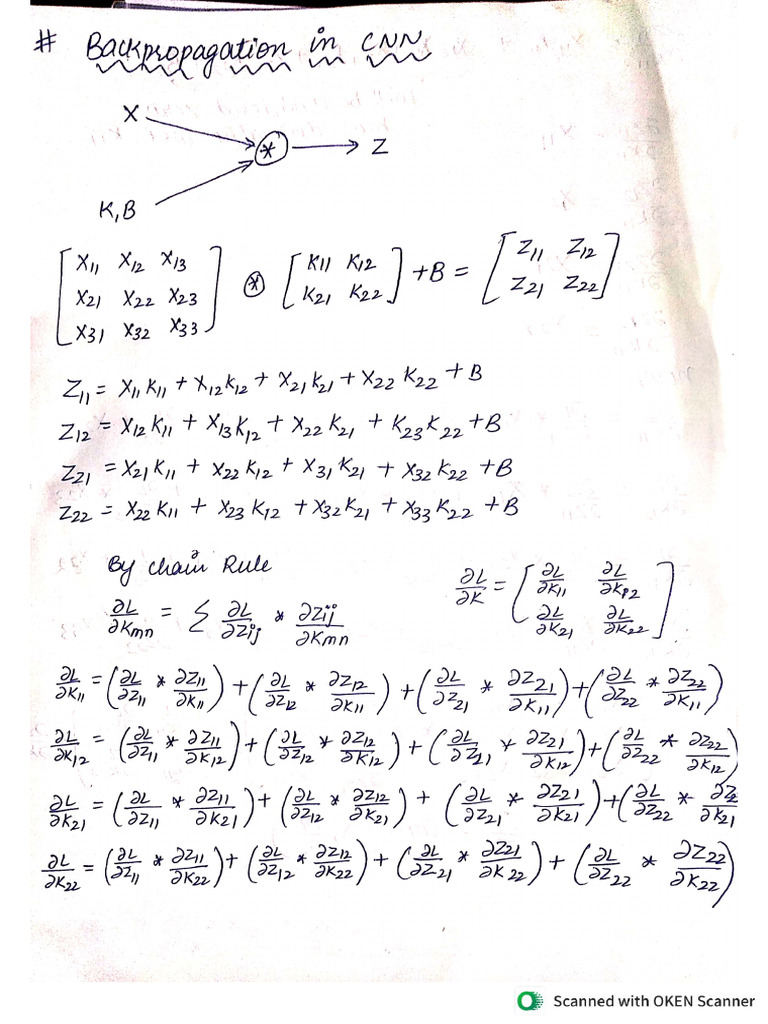 # Backpropagation in CNN
X
* → Z
K,B
[X11 X12 X13
X21 X22 X23
X31 X32 X33] ⊛ [K11 K12
K21 K22] + B = [Z11 Z12
Z21 Z22]
Z11 = X11K11 + X12K12 + X21K21 + X22K22 + B
Z12 = X12K11 + X13K12 + X22K21 + K23K22 + B
Z21 = X21K11 + X22K12 + X31K21 + X32K22 + B
Z22 = X22K11 + X23K12 + X32K21 + X33K22 + B
By chain Rule
∂L/∂Kmn = Σ ∂L/∂Zij * ∂Zij/∂Kmn
∂L/∂K = [∂L/∂K11 ∂L/∂K12
∂L/∂K21 ∂L/∂K22]
∂L/∂K11 = (∂L/∂Z11 * ∂Z11/∂K11) + (∂L/∂Z12 * ∂Z12/∂K11) + (∂L/∂Z21 * ∂Z21/∂K11) + (∂L/∂Z22 * ∂Z22/∂K11)
∂L/∂K12 = (∂L/∂Z11 * ∂Z11/∂K12) + (∂L/∂Z12 * ∂Z12/∂K12) + (∂L/∂Z21 * ∂Z21/∂K12) + (∂L/∂Z22 * ∂Z22/∂K12)
∂L/∂K21 = (∂L/∂Z11 * ∂Z11/∂K21) + (∂L/∂Z12 * ∂Z12/∂K21) + (∂L/∂Z21 * ∂Z21/∂K21) + (∂L/∂Z22 * ∂Z2/∂K21
∂L/∂K22 = (∂L/∂Z11 * ∂Z11/∂K22) + (∂L/∂Z12 * ∂Z12/∂K22) + (∂L/∂Z21 * ∂Z21/∂K22) + (∂L/∂Z22 * ∂Z22/∂K22)
Scanned with OKEN Scanner